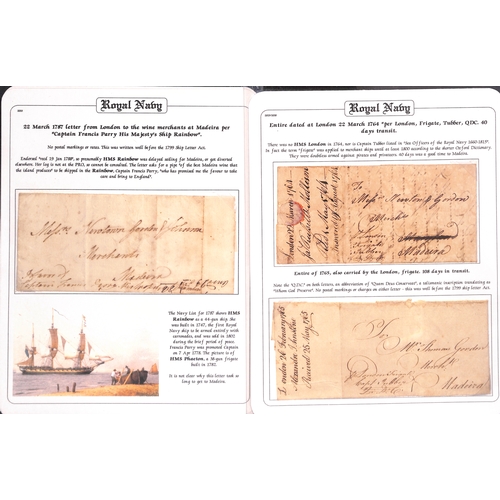 Royal Navy
22 March 1787 letter from London to the wine merchants at Madeira per
"Captain Francis Parry His Majesty's Ship Rainbow".
No postal markings or rates. This was written well before the 1799 Ship Letter Act.
Endorsed "recd 19 Jan 1788", so presumably HMS Rainbow was delayed sailing for Madeira, or got diverted
elsewhere. Her log is not at the PRO, so cannot be consulted. The letter asks for a pipe "of the best Madeira wine that
the island produces" to be shipped in the Rainbow, Captain Parry, "who has promised me the favour to take
care and bring to England".
Merchants
Madeira
The Navy List for 1787 shows HMS
Rainbow as a 44-gun ship. She
was built in 1747, the first Royal
Navy ship to be armed entirely with
carronades, and was sold in 1802
during the brief period of peace.
Francis Parry was promoted Captain
on 7 Apr 1778. The picture is of
HMS Phaeton, a 38-gun frigate
built in 1782.
It is not clear why this letter took so
long to get to Madeira.
Royal Navy
Entire dated at London 22 March 1764 "per London, Frigate, Tubber, QDC. 40
days transit.
There was no HMS London in 1764, nor is Captain Tubber listed in "Sea Officers of the Royal Navy 1660-1815".
In fact the term "frigate" was applied to merchant ships until at least 1800 according to the Shorter Oxford Dictionary.
They were doubtless armed against pirates and privateers. 40 days was a good time to Madeira.
London 22 March 1764
To
Messrs Newton & Gordon
Merchts
Madeira
Entire of 1765, also carried by the London, frigate. 108 days in transit.
Note the "Q.D.C." on both letters, an abbreviation of "Quem Deus Conservat", a talismanic inscription translating as
"Whom God Preserve". No postal markings or charges on either letter - this was well before the 1799 Ship Letter Act.
London 26 February 1765
Received 25 May 1765
To
Mr Thomas Gordon
Mercht
Madeira